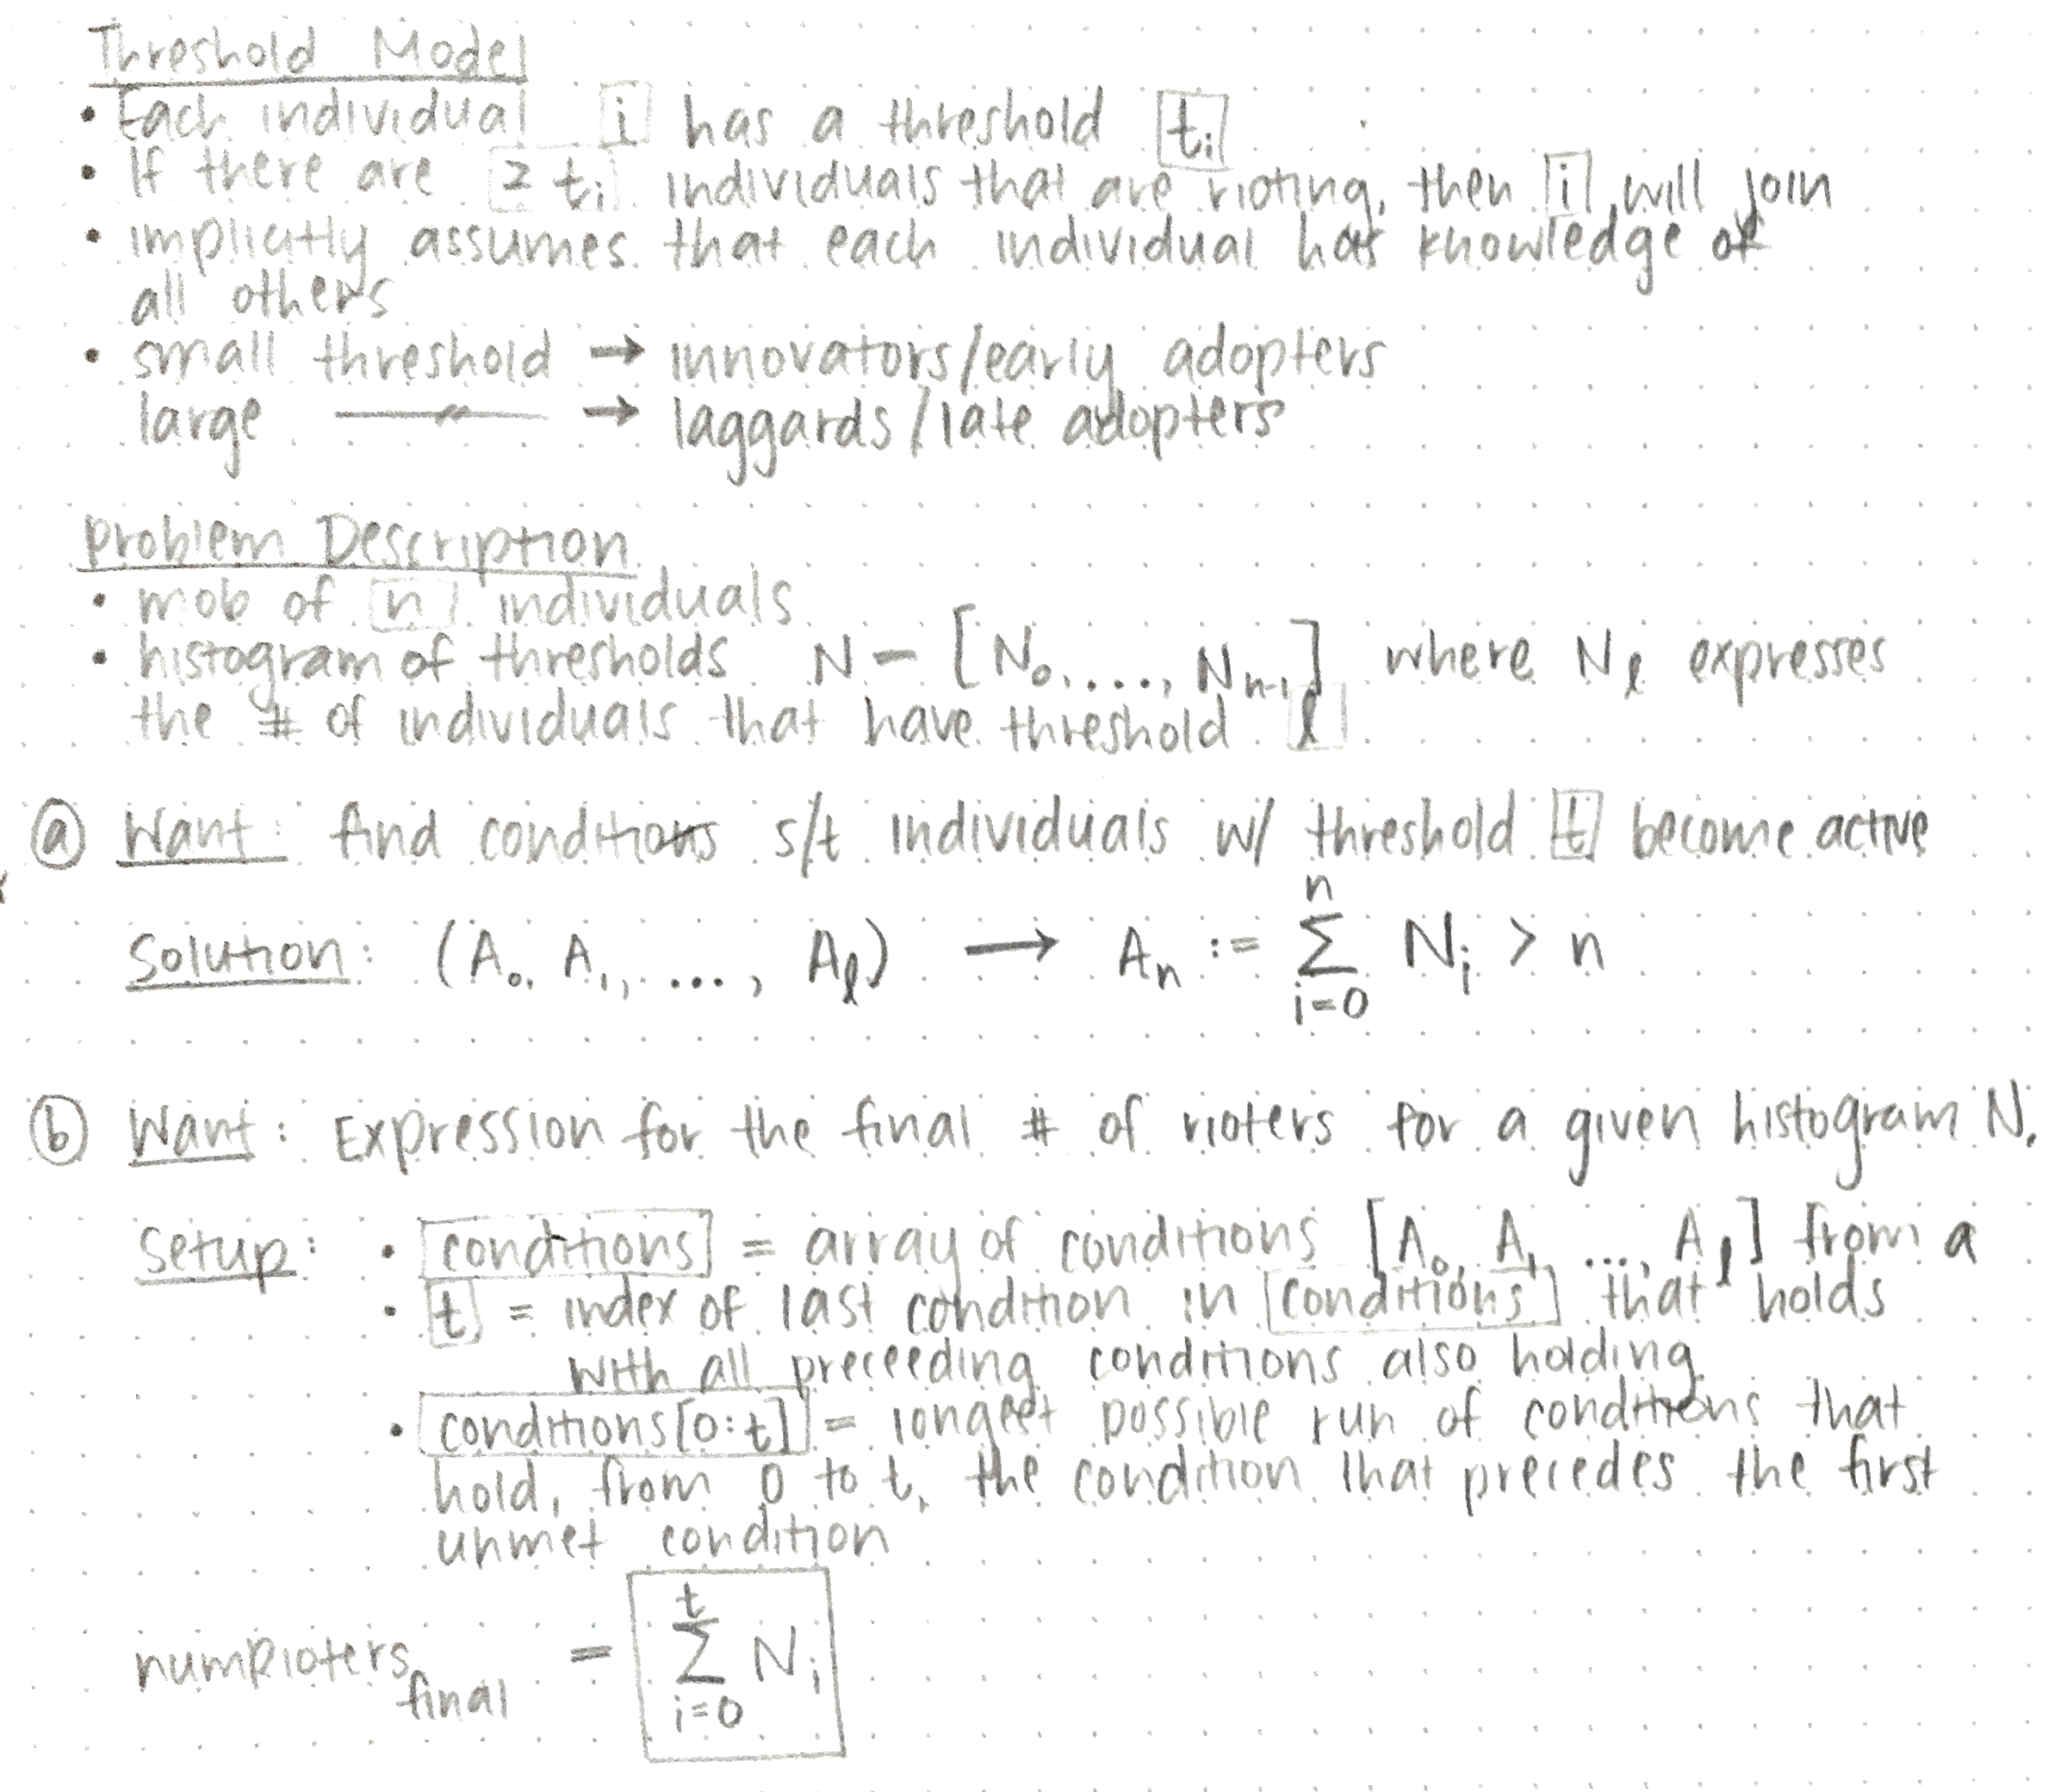 Threshold Model
• Each individual i has a threshold tᵢ
• If there are ≥ tᵢ individuals that are rioting, then i will join
• implicitly assumes that each individual has knowledge of
all others
• small threshold → innovators/early adopters
large —〃— → laggards/late adopters
Problem Description
• mob of n individuals
• histogram of thresholds N = [N₀, ..., Nₙ₋₁] where N_ℓ expresses
the # of individuals that have threshold ℓ
ⓐ Want: find conditions s/t individuals w/ threshold t become active
Solution: (A₀, A₁, ..., A_ℓ) → Aₙ := ∑_{i=0}^{n} Nᵢ > n
ⓑ Want: Expression for the final # of rioters for a given histogram N.
Setup: • conditions = array of conditions [A₀, A₁, ..., A_ℓ] from a
• t = index of last condition in conditions that holds
with all preceeding conditions also holding
• conditions[0:t] = longest possible run of conditions that
hold, from 0 to t, the condition that precedes the first
unmet condition
numRioters_final = ∑_{i=0}^{t} Nᵢ